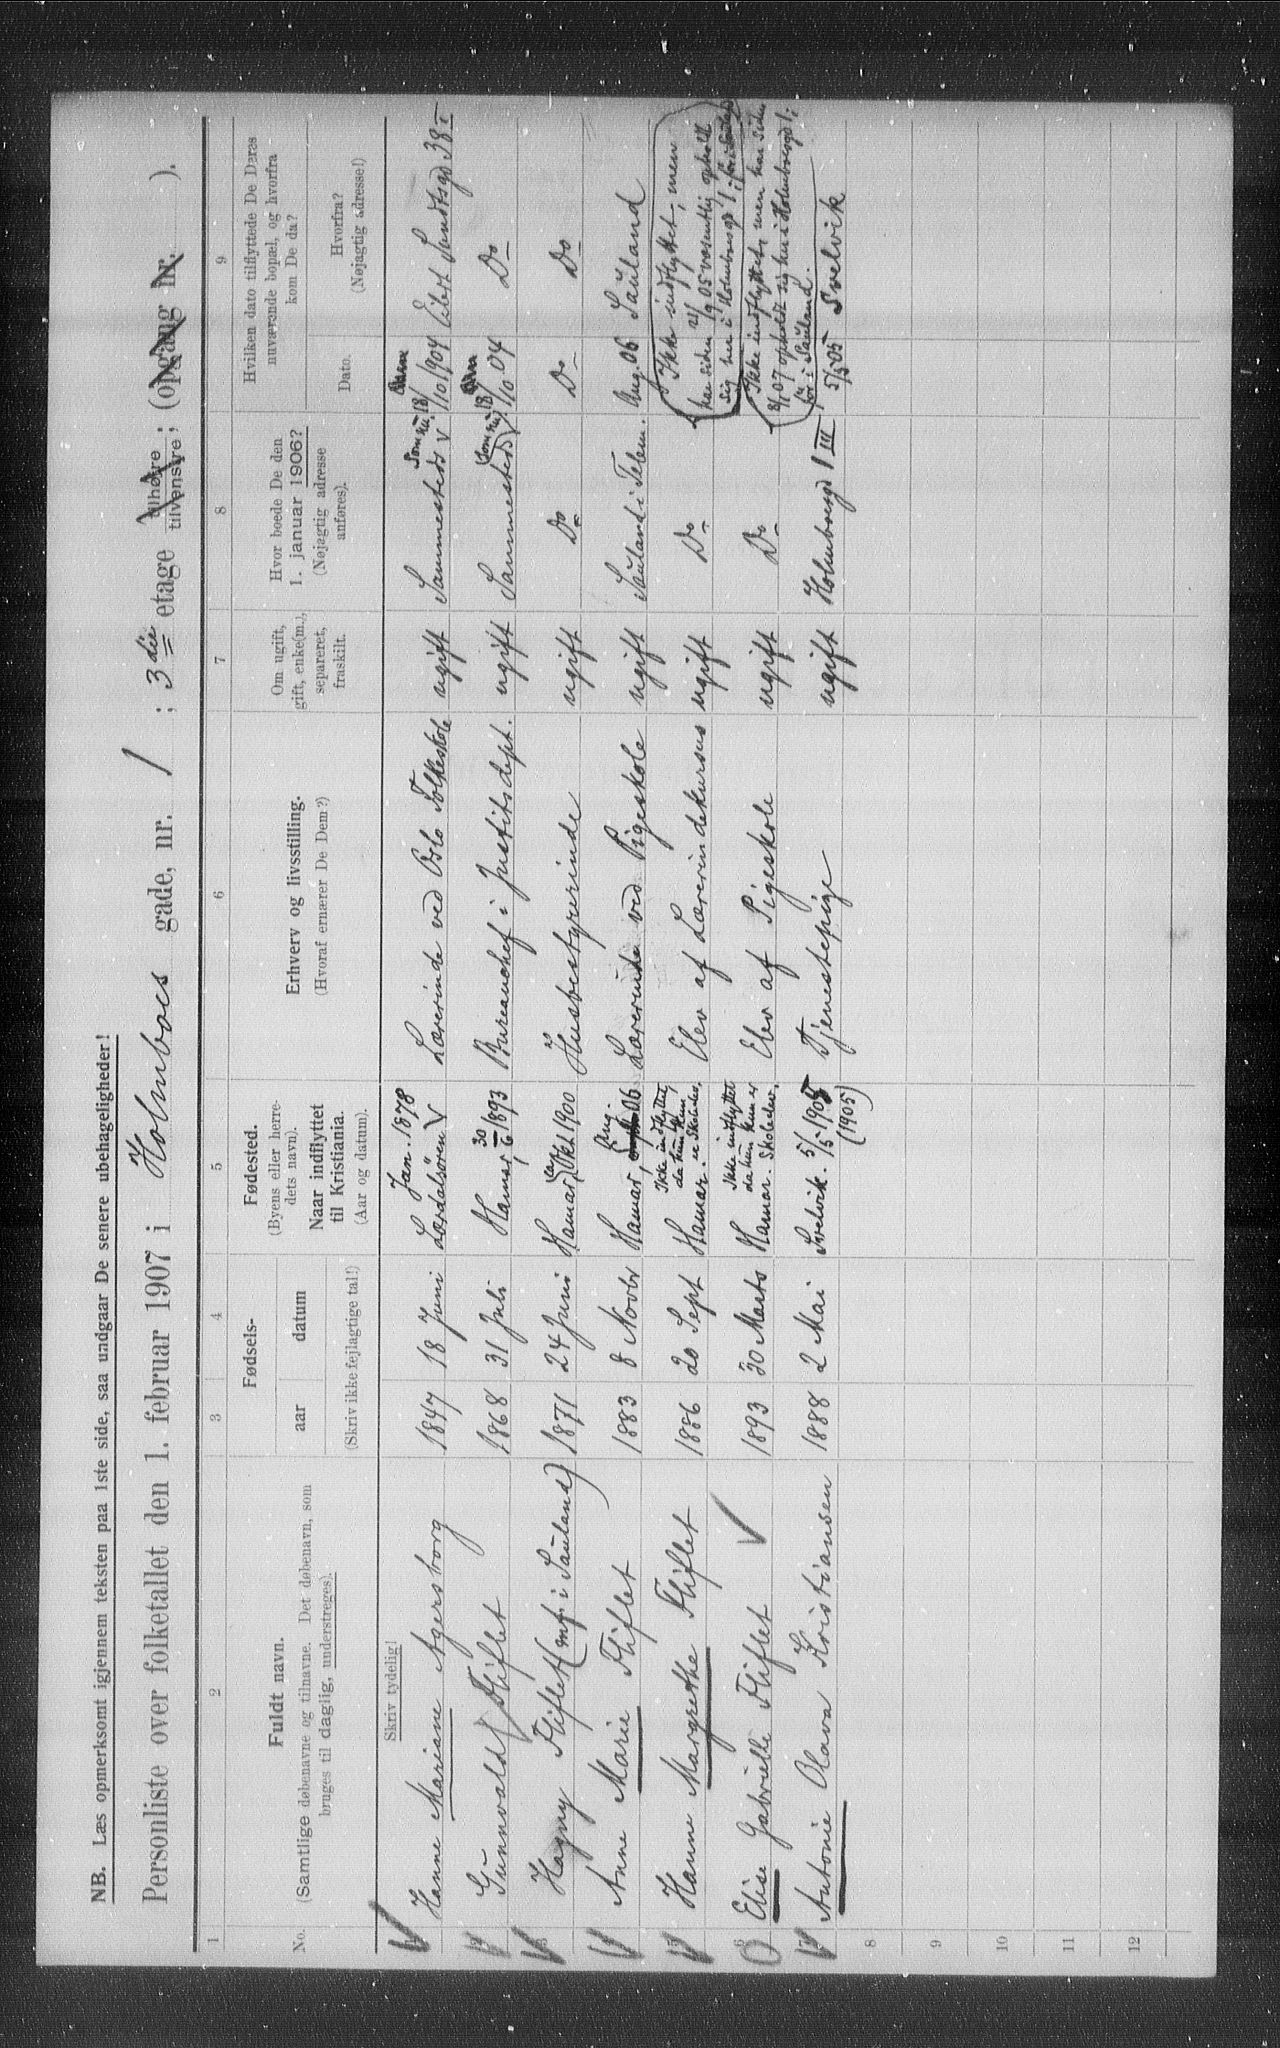 NB. Læs opmerksomt igjennem teksten paa 1ste side, saa undgaar De senere ubehageligheder!
Personliste over folketallet den 1. februar 1907 i Holmboes gade, nr. 1; 3die etage tilhøire tilvenstre; (opgang nr. ).
1 2 3 4 5 6 7 8 9
No.
Fuldt navn.
(Samtlige døbenavne og tilnavne. Det døbenavn, som
bruges til daglig, understreges).
Skriv tydelig!
Fødsels-
aar datum
(Skriv ikke fejlagtige tal!)
Fødested.
(Byens eller herre-
dets navn).
Naar indflyttet
til Kristiania.
(Aar og datum).
Erhverv og livsstilling.
(Hvoraf ernærer De Dem?)
Om ugift,
gift, enke(m.),
separeret,
fraskilt.
Hvor boede De den
1. januar 1906?
(Nøjagtig adresse
anføres).
Hvilken dato tilflyttede De Deres
nuværende bopæl, og hvorfra
kom De da?
Dato.
Hvorfra?
(Nøjagtig adresse!)
1 Hanne Mariane Agersborg 1847 18 Juni Jan. 1878 Lærdalsøren Lærerinde ved Oslo Folkeskole ugift Sammesteds Som nu 18/10 1904 Eilert Sundtsgd 38 I
2 Gunnvald Fliflet 1868 31 Juli Hamar, 30/6 1893 Bureauchef i Justitsdept. ugift Sammesteds (Som nu) 18/10 04 Do
3 Hagny Fliflet (mf. i Sauland) 1871 24 Juni Hamar, ca Okt 1900 Husbestyrerinde ugift Do Do Do
4 Anne Marie Fliflet 1883 8 Novbr Hamar, Aug. 06 Lærerinde ved Pigeskole ugift Sauland i Telem. Aug. 06 Sauland
5 Hanne Margrethe Fliflet 1886 20 Sept Hamar. Ikke indflyttet da hun kun er Skoleelev. Elev af Lærerindekursus ugift Do Ikke indflyttet, men
har siden 21/9 05 væsentlig opholdt
sig her i Holmboesgd 1; før i Sauland
6 Elise Gabrielle Fliflet 1893 30 Marts Hamar. Ikke indflyttet da hun kun er Skoleelev. Elev af Pigeskole ugift Do Ikke indflyttet, men har siden
8/1 07 opholdt sig her i Holmboesgd 1;
før i Sauland.
7 Antonie Olava Kristiansen 1888 2 Mai Svelvik. 5/5 1905 (1905) Tjenestepige ugift Holmboesgd 1 III 5/5 05 Svelvik
8
9
10
11
12